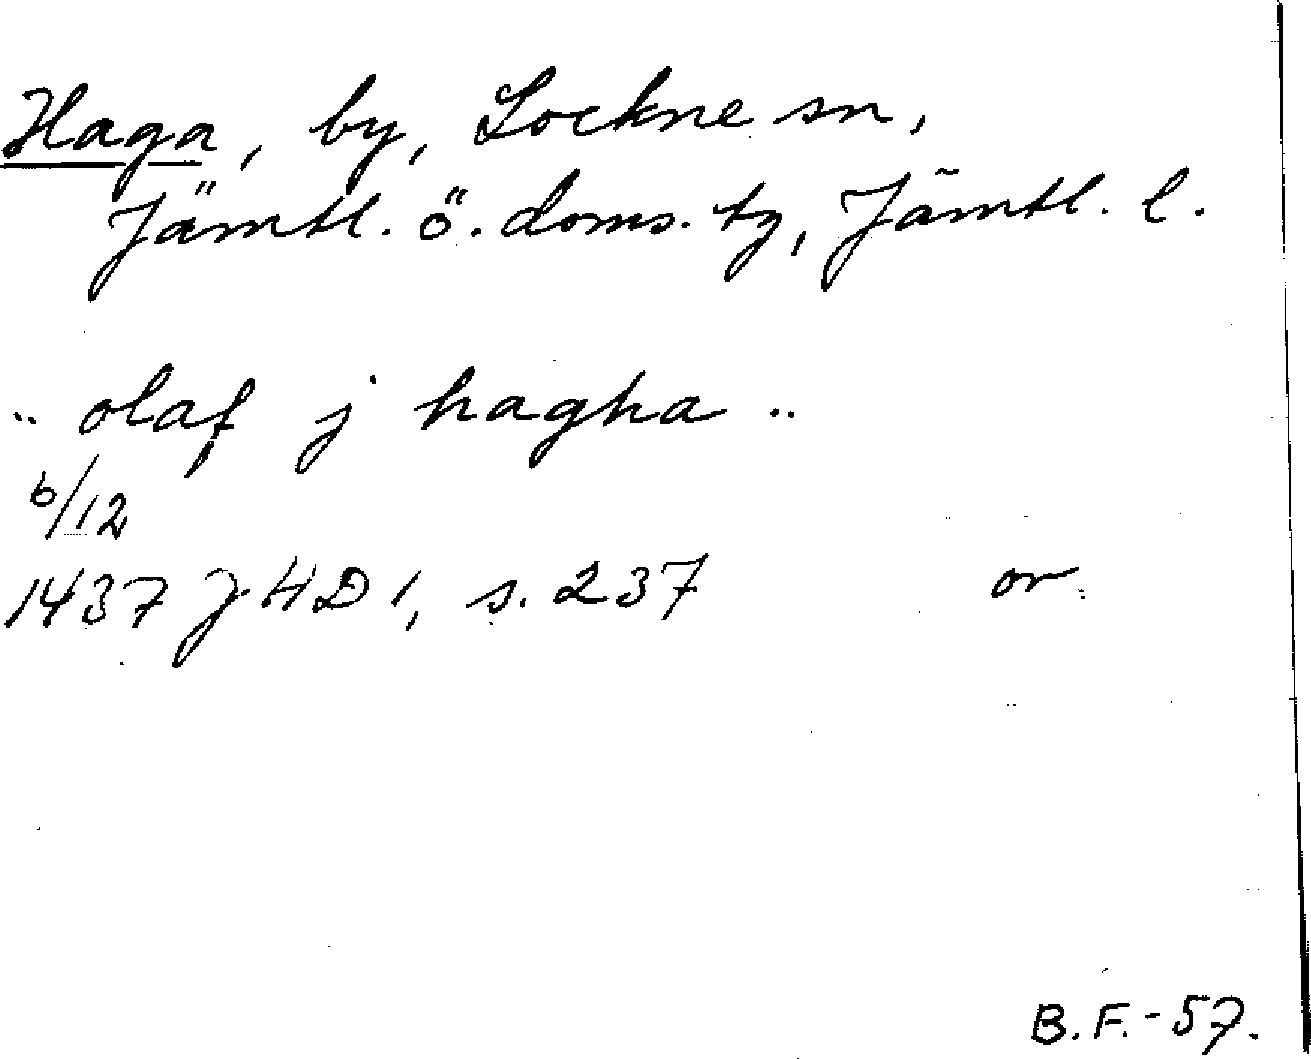 Haga, by, Lockne sn,
Jämtl. ö. doms. tg, Jämtl. l.
.. olaf j hagha ..
6/12
1437 JHD 1, s. 237 or.
B.F.-57.